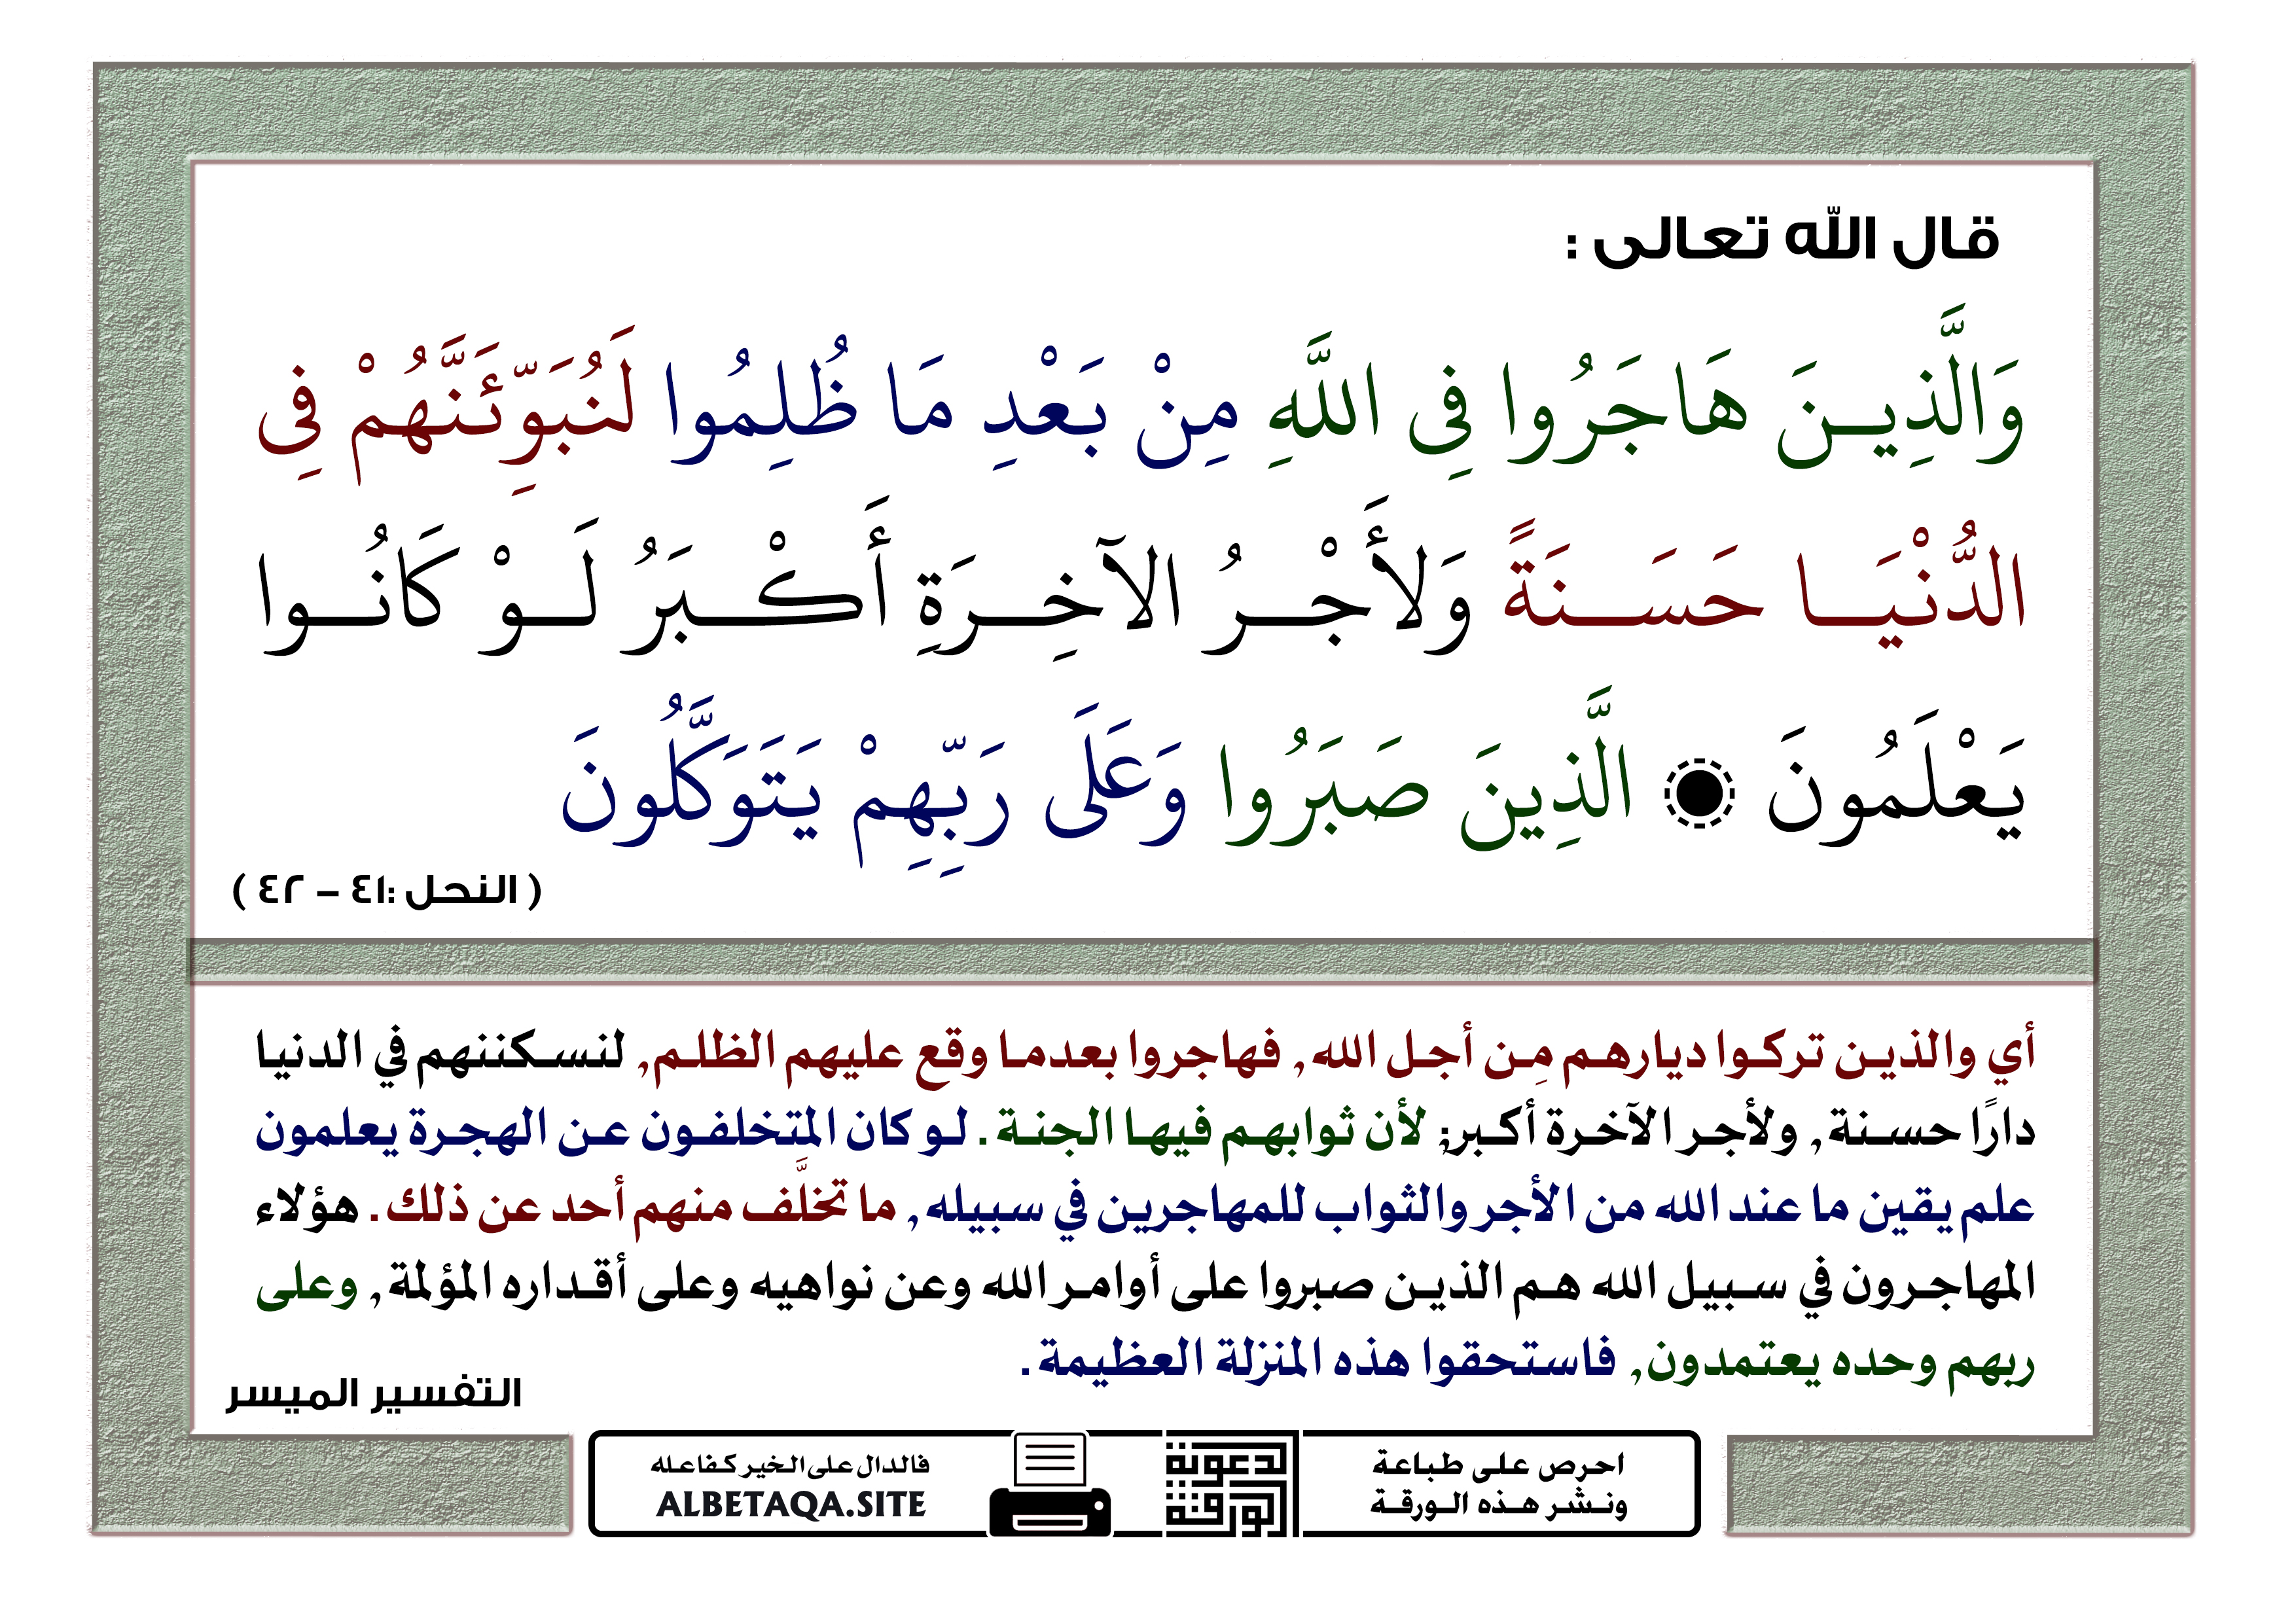 قال الله تعالى :
وَالَّذِيـنَ هَاجَرُوا فِي اللَّهِ مِنْ بَعْدِ مَا ظُلِمُوا لَنُبَوِّئَنَّهُمْ فِي
الدُّنْيَا حَسَنَةً وَلأَجْرُ الآخِرَةِ أَكْبَرُ لَوْ كَانُوا
يَعْلَمُونَ ۞ الَّذِينَ صَبَرُوا وَعَلَى رَبِّهِمْ يَتَوَكَّلُونَ
( النحل :٤١ – ٤٢ )
أي والذين تركوا ديارهم مِن أجل الله, فهاجروا بعدما وقع عليهم الظلم, لنسكننهم في الدنيا
دارًا حسنة, ولأجر الآخرة أكبر; لأن ثوابهم فيها الجنة. لو كان المتخلفون عن الهجرة يعلمون
علم يقين ما عند الله من الأجر والثواب للمهاجرين في سبيله, ما تخلَّف منهم أحد عن ذلك. هؤلاء
المهاجرون في سبيل الله هم الذين صبروا على أوامر الله وعن نواهيه وعلى أقداره المؤلمة, وعلى
ربهم وحده يعتمدون, فاستحقوا هذه المنزلة العظيمة.
التفسير الميسر
احرص على طباعة
ونشر هذه الورقة
الورقة
الدعوية
فالدال على الخير كفاعله
ALBETAQA.SITE